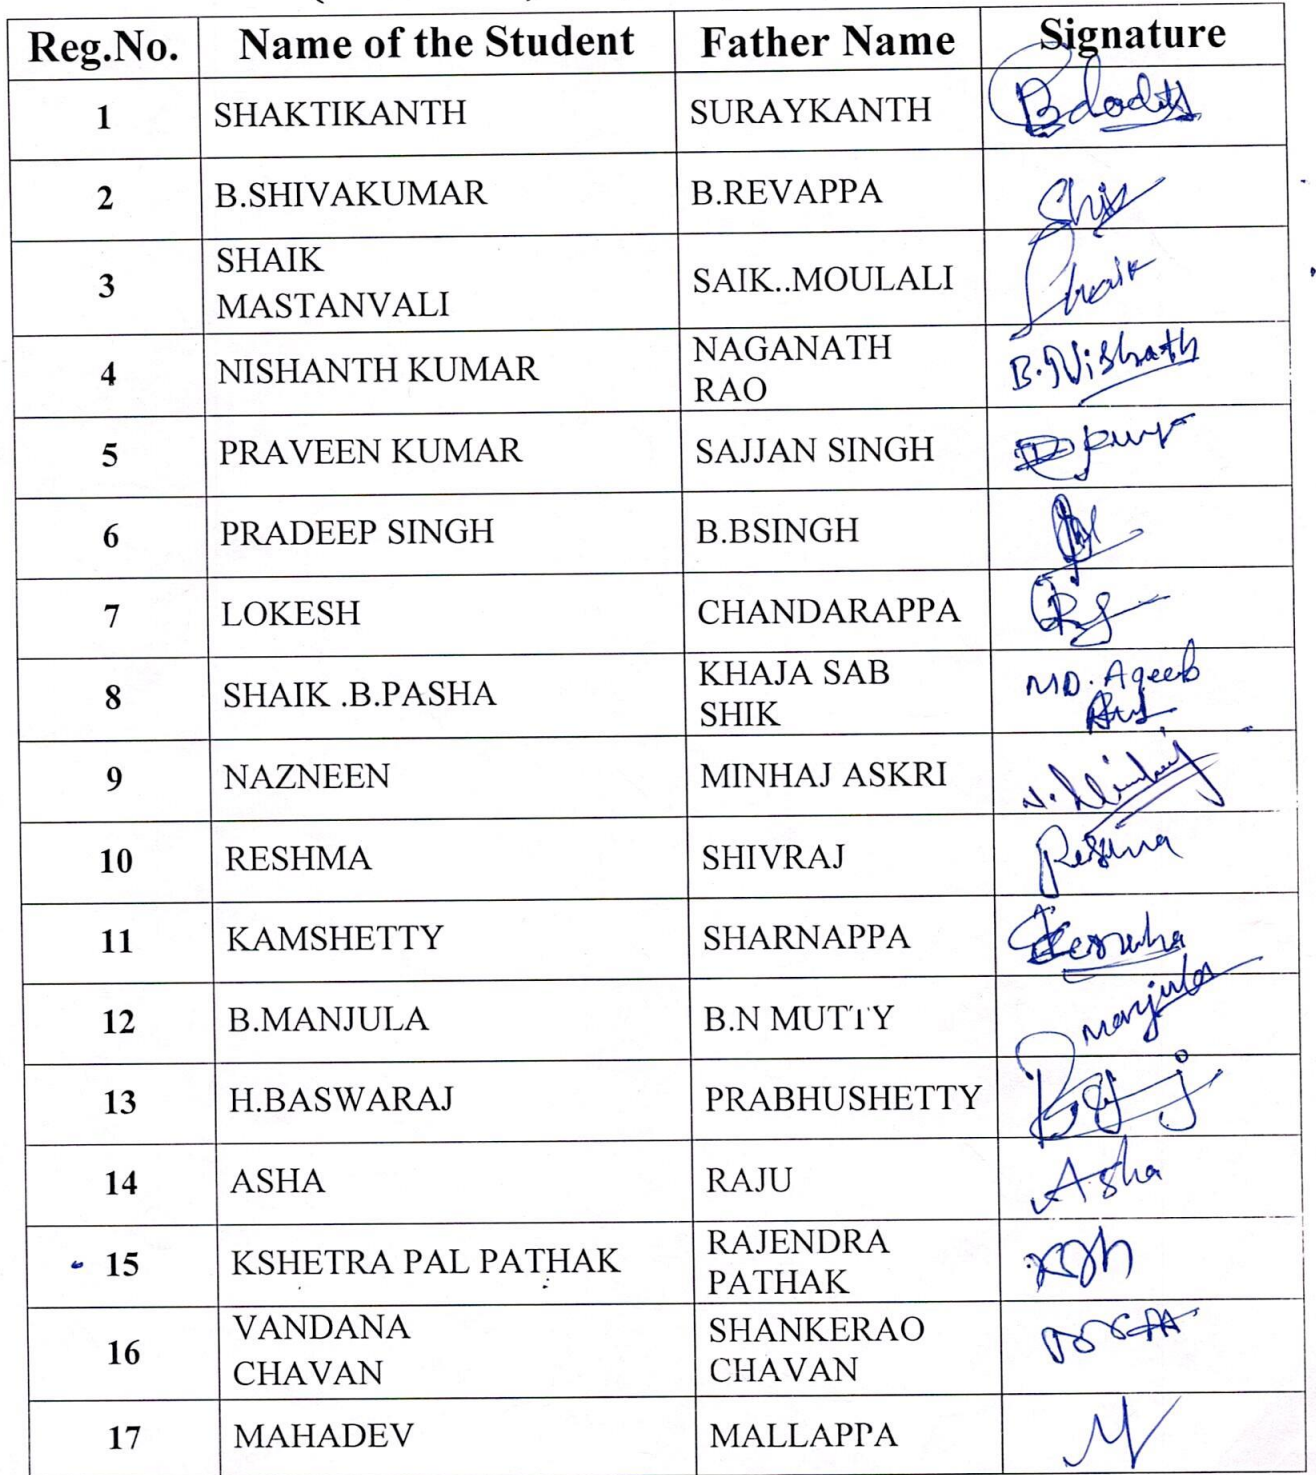 Reg.No. Name of the Student Father Name Signature
1 SHAKTIKANTH SURAYKANTH
2 B.SHIVAKUMAR B.REVAPPA Shiv
3 SHAIK
MASTANVALI SAIK..MOULALI Shaik
4 NISHANTH KUMAR NAGANATH
RAO B.Nishath
5 PRAVEEN KUMAR SAJJAN SINGH
6 PRADEEP SINGH B.BSINGH
7 LOKESH CHANDARAPPA
8 SHAIK .B.PASHA KHAJA SAB
SHIK MD. Aqeeb
9 NAZNEEN MINHAJ ASKRI
10 RESHMA SHIVRAJ Reshma
11 KAMSHETTY SHARNAPPA
12 B.MANJULA B.N MUTTY Manjula
13 H.BASWARAJ PRABHUSHETTY
14 ASHA RAJU Asha
15 KSHETRA PAL PATHAK RAJENDRA
PATHAK
16 VANDANA
CHAVAN SHANKERAO
CHAVAN
17 MAHADEV MALLAPPA